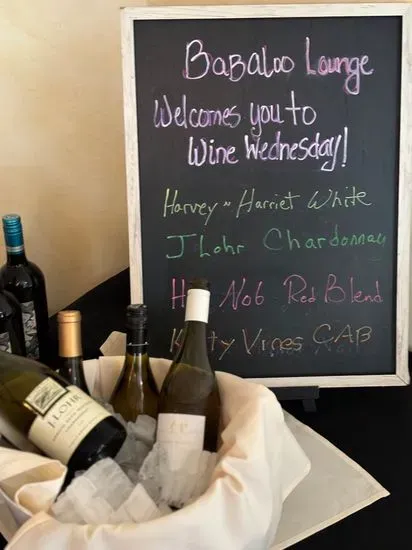 Babaloo Lounge
Welcomes you to
Wine Wednesday!
Harvey n Harriet White
J Lohr Chardonnay
Nob Red Blend
Vines CAB
J. LOHR